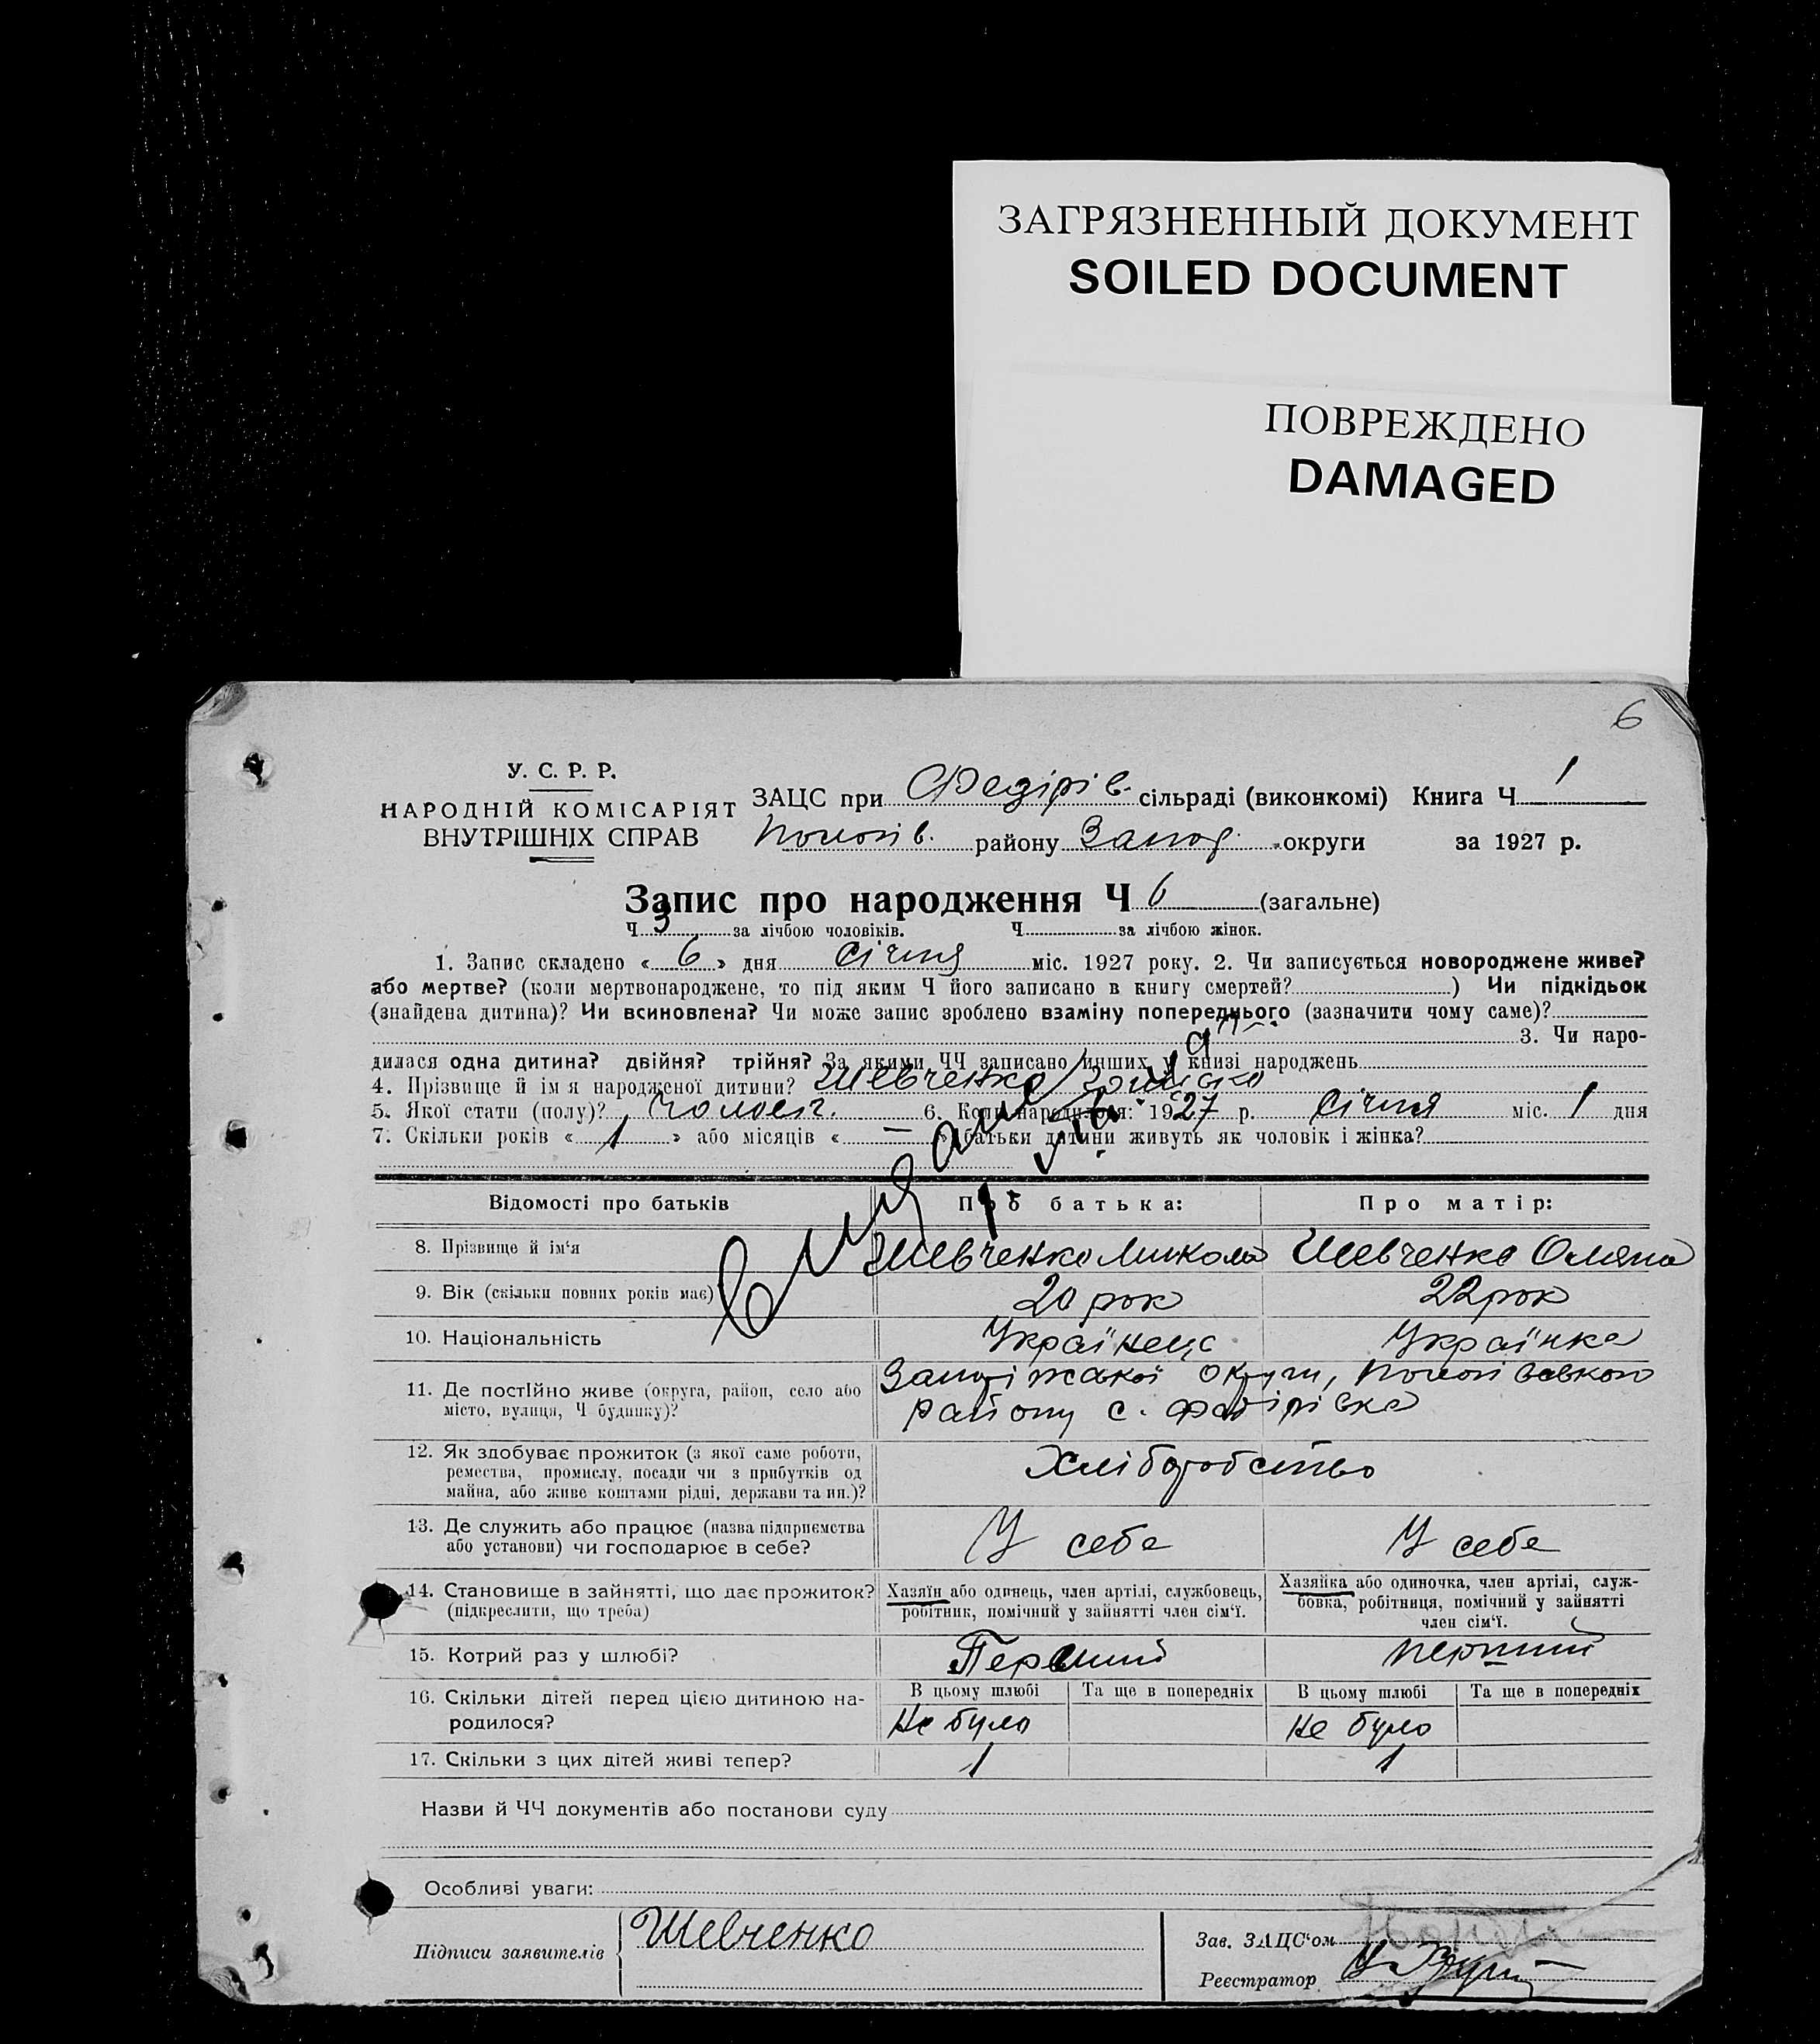 ЗАГРЯЗНЕННЫЙ ДОКУМЕНТ
SOILED DOCUMENT
ПОВРЕЖДЕНО
DAMAGED
6
У. С. Р. Р.
НАРОДНІЙ КОМІСАРІЯТ
ВНУТРІШНІХ СПРАВ
ЗАЦС при Федірів. сільраді (виконкомі) Книга Ч 1
Пологів. району Запор. округи за 1927 р.
Запис про народження Ч 6 (загальне)
Ч 3 за лічбою чоловіків. Ч за лічбою жінок.
1. Запис складено « 6 » дня січня міс. 1927 року. 2. Чи записується новороджене живе?
або мертве? (коли мертвонароджене, то під яким Ч його записано в книгу смертей? ) Чи підкідьок
(знайдена дитина)? Чи всиновлена? Чи може запис зроблено взаміну попереднього (зазначити чому саме)?
3. Чи наро-
дилася одна дитина? двійня? трійня? За якими ЧЧ записано инших у книзі народжень
4. Прізвище й ім я народженої дитини? Шевченко
5. Якої стати (полу)? чоловіч. 6. Коли народилося: 1927 р. січня міс. 1 дня
7. Скільки років « 1 » або місяців « — » батьки дитини живуть як чоловік і жінка?
Відомості про батьків Про батька: Про матір:
8. Прізвище й ім'я Шевченко Микола Шевченко Оляна
9. Вік (скільки повних років має) 20 рок 22 рок
10. Національність Українець Українка
11. Де постійно живе (округа, район, село або
місто, вулиця, Ч будинку)?
Запоріжської округи, Пологівського
району с. Федірівка
12. Як здобуває прожиток (з якої саме роботи,
ремества, промислу, посади чи з прибутків од
майна, або живе коштами рідні, держави та ин.)?
Хліборобство
13. Де служить або працює (назва підприємства
або установи) чи господарює в себе?
У себе У себе
14. Становище в зайнятті, що дає прожиток?
(підкреслити, що треба)
Хазяїн або одинець, член артілі, службовець,
робітник, помічний у зайнятті член сім'ї.
Хазяйка або одиночка, член артілі, служ-
бовка, робітниця, помічний у зайнятті
член сім'ї.
15. Котрий раз у шлюбі? Перший перший
16. Скільки дітей перед цією дитиною на-
родилося?
В цьому шлюбі Та ще в попередніх В цьому шлюбі Та ще в попередніх
Не було Не було
17. Скільки з цих дітей живі тепер? 1 1
Назви й ЧЧ документів або постанови суду
Особливі уваги:
Підписи заявителів Шевченко
Зав. ЗАЦС'ом
Реєстратор